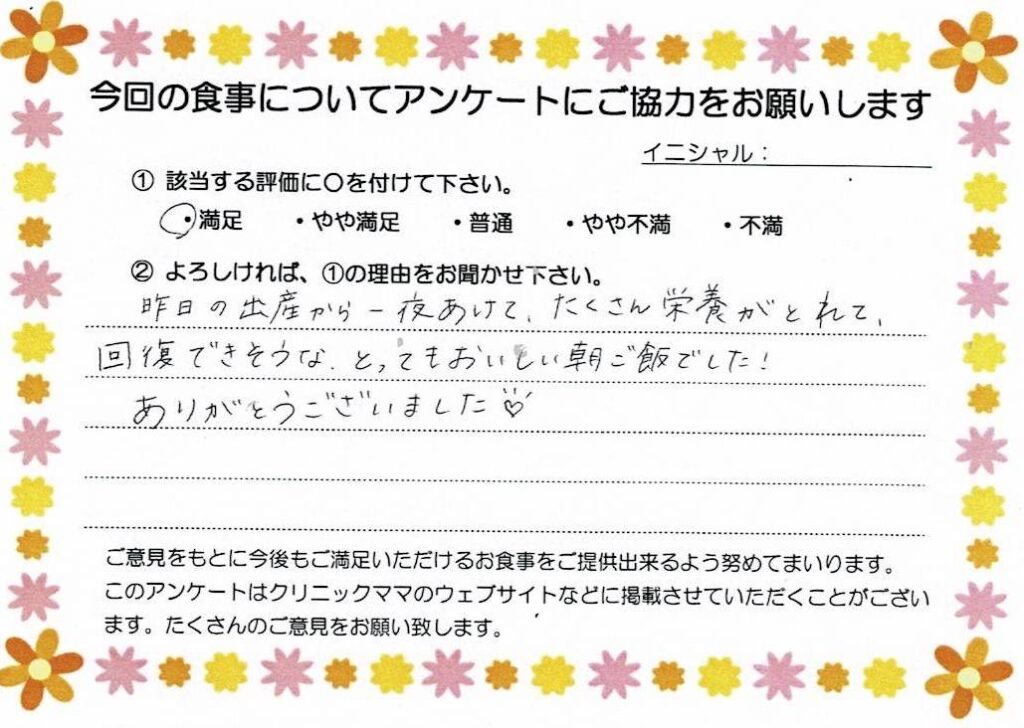 今回の食事についてアンケートにご協力をお願いします
イニシャル：
① 該当する評価に〇を付けて下さい。
・満足 ・やや満足 ・普通 ・やや不満 ・不満
② よろしければ、①の理由をお聞かせ下さい。
昨日の出産から一夜あけて、たくさん栄養がとれて、
回復できそうな、とってもおいしい朝ご飯でした！
ありがとうございました♡
ご意見をもとに今後もご満足いただけるお食事をご提供出来るよう努めてまいります。
このアンケートはクリニックママのウェブサイトなどに掲載させていただくことがござい
ます。たくさんのご意見をお願い致します。